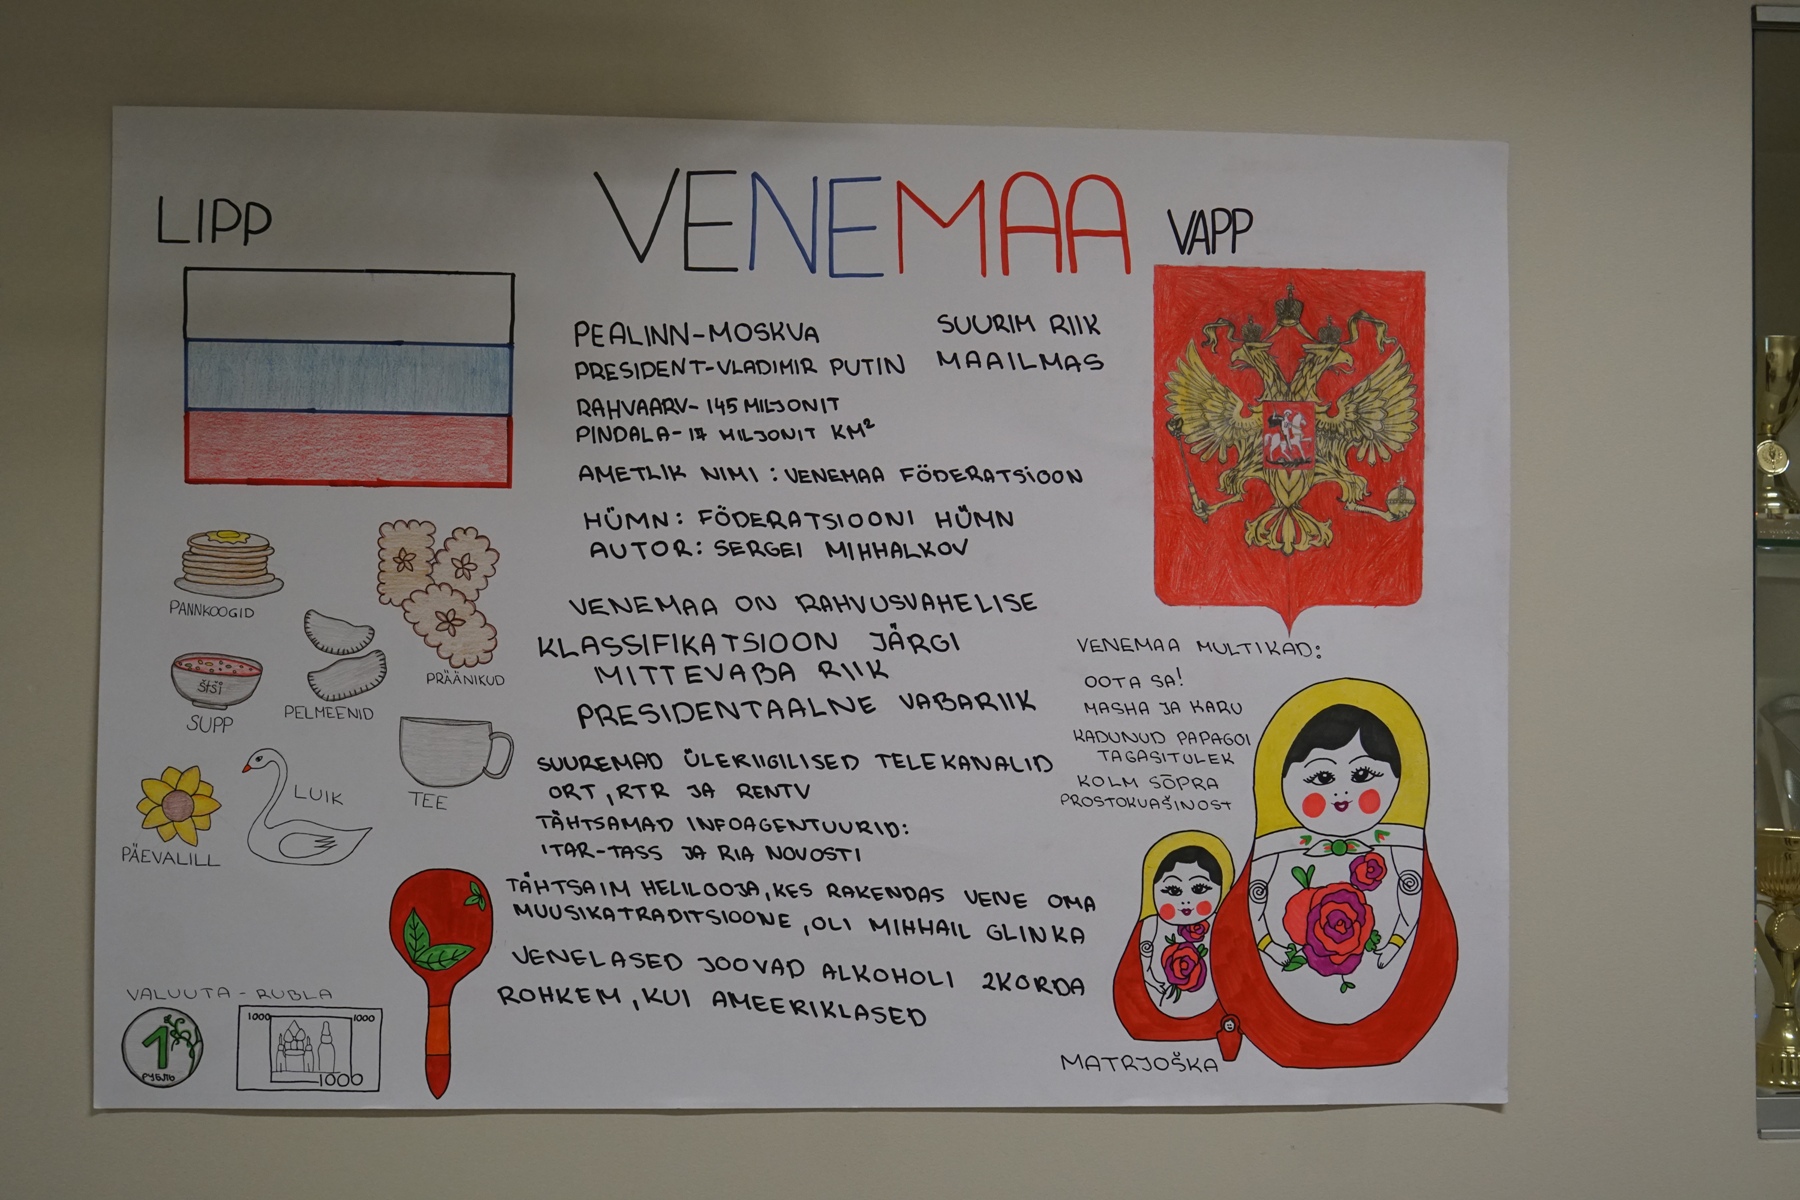 LIPP
VENEMAA
VAPP
PEALINN-MOSKVA
PRESIDENT-VLADIMIR PUTIN
SUURIM RIIK
MAAILMAS
RAHVAARV- 145 MILJONIT
PINDALA- 17 MILJONIT KM²
AMETLIK NIMI : VENEMAA FÖDERATSIOON
HÜMN: FÖDERATSIOONI HÜMN
AUTOR: SERGEI MIHHALKOV
VENEMAA ON RAHVUSVAHELISE
KLASSIFIKATSIOON JÄRGI
MITTEVABA RIIK
PRESIDENTAALNE VABARIIK
SUUREMAD ÜLERIIGILISED TELEKANALID
ORT, RTR JA RENTV
TÄHTSAMAD INFOAGENTUURID:
ITAR-TASS JA RIA NOVOSTI
TÄHTSAIM HELILOOJA, KES RAKENDAS VENE OMA
MUUSIKATRADITSIOONE, OLI MIHHAIL GLINKA
VENELASED JOOVAD ALKOHOLI 2KORDA
ROHKEM, KUI AMEERIKLASED
PANNKOOGID
PRÄÄNIKUD
ŠTŠI
SUPP
PELMEENID
TEE
LUIK
PÄEVALILL
VALUUTA - RUBLA
1
РУБЛЬ
1000
1000
1000
VENEMAA MULTIKAD:
OOTA SA!
MASHA JA KARU
KADUNUD PAPAGOI
TAGASITULEK
KOLM SÕPRA
PROSTOKVAŠINOST
MATRJOŠKA